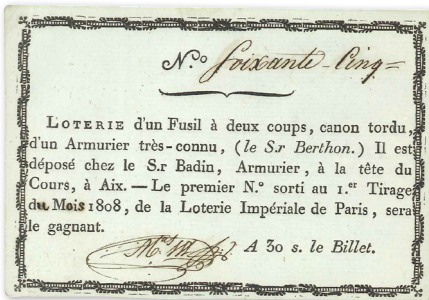 N.o Soixante-Cinq=
LOTERIE d'un Fusil à deux coups, canon tordu,
d'un Armurier très-connu, (le S.r Berthon.) Il est
déposé chez le S.r Badin, Armurier, à la tête du
Cours, à Aix. — Le premier N.o sorti au 1.er Tirage
du Mois 1808, de la Loterie Impériale de Paris, sera
le gagnant.
A 30 s. le Billet.